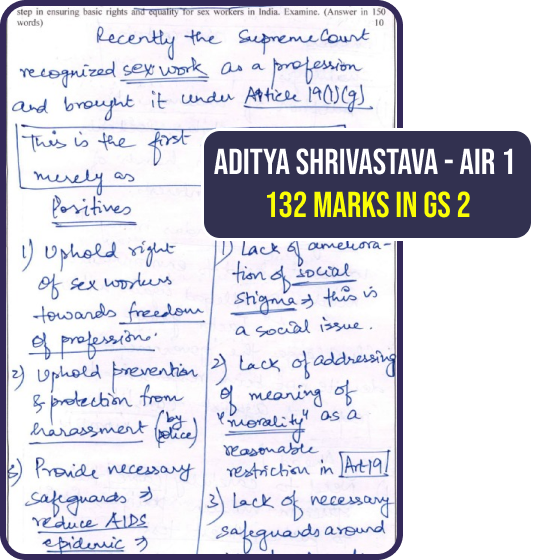 step in ensuring basic rights and equality for sex workers in India. Examine. (Answer in 150
words) 10
Recently the Supreme Court
recognized sex work as a profession
and brought it under Article 19(1)(g)
This is the first
merely as
ADITYA SHRIVASTAVA - AIR 1
132 MARKS IN GS 2
Positives
1) Uphold right
of sex workers
towards freedom
of profession.
2) Uphold prevention
& protection from
harassment (by
police)
3) Provide necessary
safeguards →
reduce AIDS
epidemic →
1) Lack of ameliora-
tion of social
stigma → this is
a social issue.
2) Lack of addressing
of meaning of
"morality" as a
reasonable
restriction in Art 19
3) Lack of necessary
safeguards around